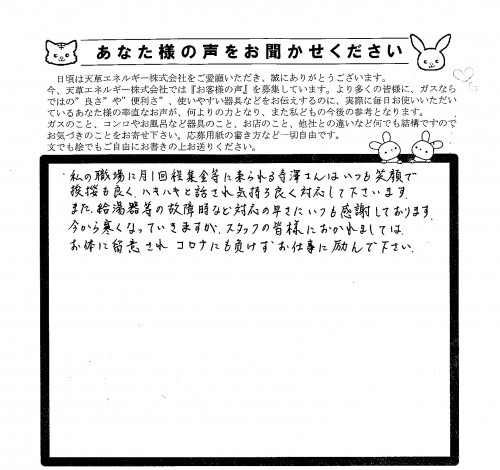 あなた様の声をお聞かせください
日頃は天草エネルギー株式会社をご愛顧いただき、誠にありがとうございます。
今、天草エネルギー株式会社では『お客様の声』を募集しています。より多くの皆様に、ガスなら
ではの"良さ"や"便利さ"、使いやすい器具などをお伝えするのに、実際に毎日お使いいただい
ているあなた様の率直なお声が、何よりの力となり、また私どもの今後の参考となります。
ガスのこと、コンロやお風呂など器具のこと、お店のこと、他社との違いなど何でも結構ですので
お気づきのことをお寄せ下さい。応募用紙の書き方など一切自由です。
文でも絵でもご自由にお書きの上お送りください。
私の職場に月1回程集金等に来られる寺澤さんはいつも笑顔で
挨拶も良く、ハキハキと話され気持ち良く対応して下さいます。
また、給湯器等の故障時など対応の早さにいつも感謝しております。
今から寒くなっていきますが、スタッフの皆様におかれましては、
お体に留意され コロナにも負けず お仕事に励んで下さい。